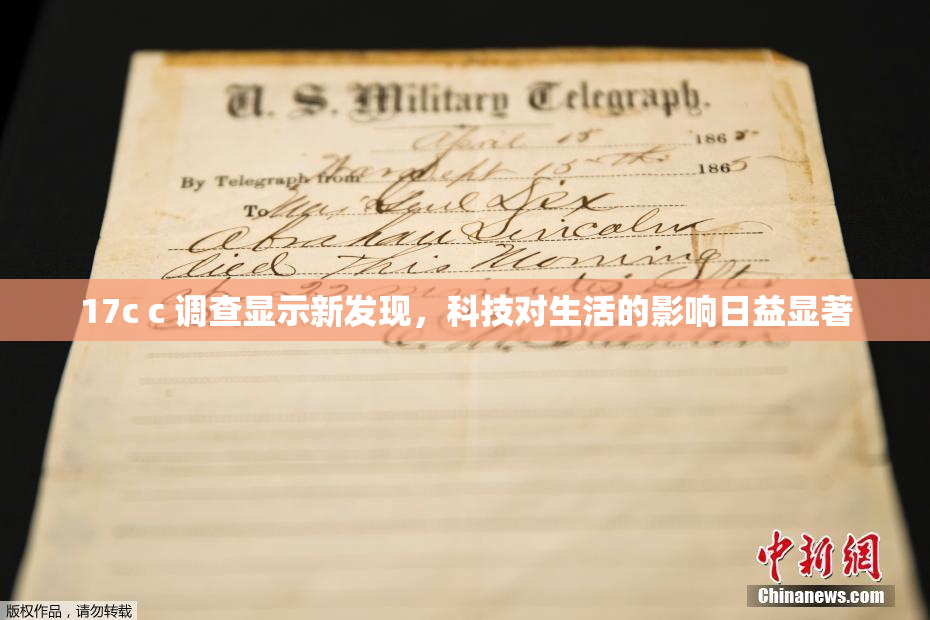 U. S. Military Telegraph.
April 15 1865
By Telegraph from War Dept 15th 1865
To Maj Genl Dix
Abraham Lincoln
died This Morning
at 22 minutes After
17c c 调查显示新发现，科技对生活的影响日益显著
E. M. Stanton
中新网
Chinanews.com
版权作品，请勿转载